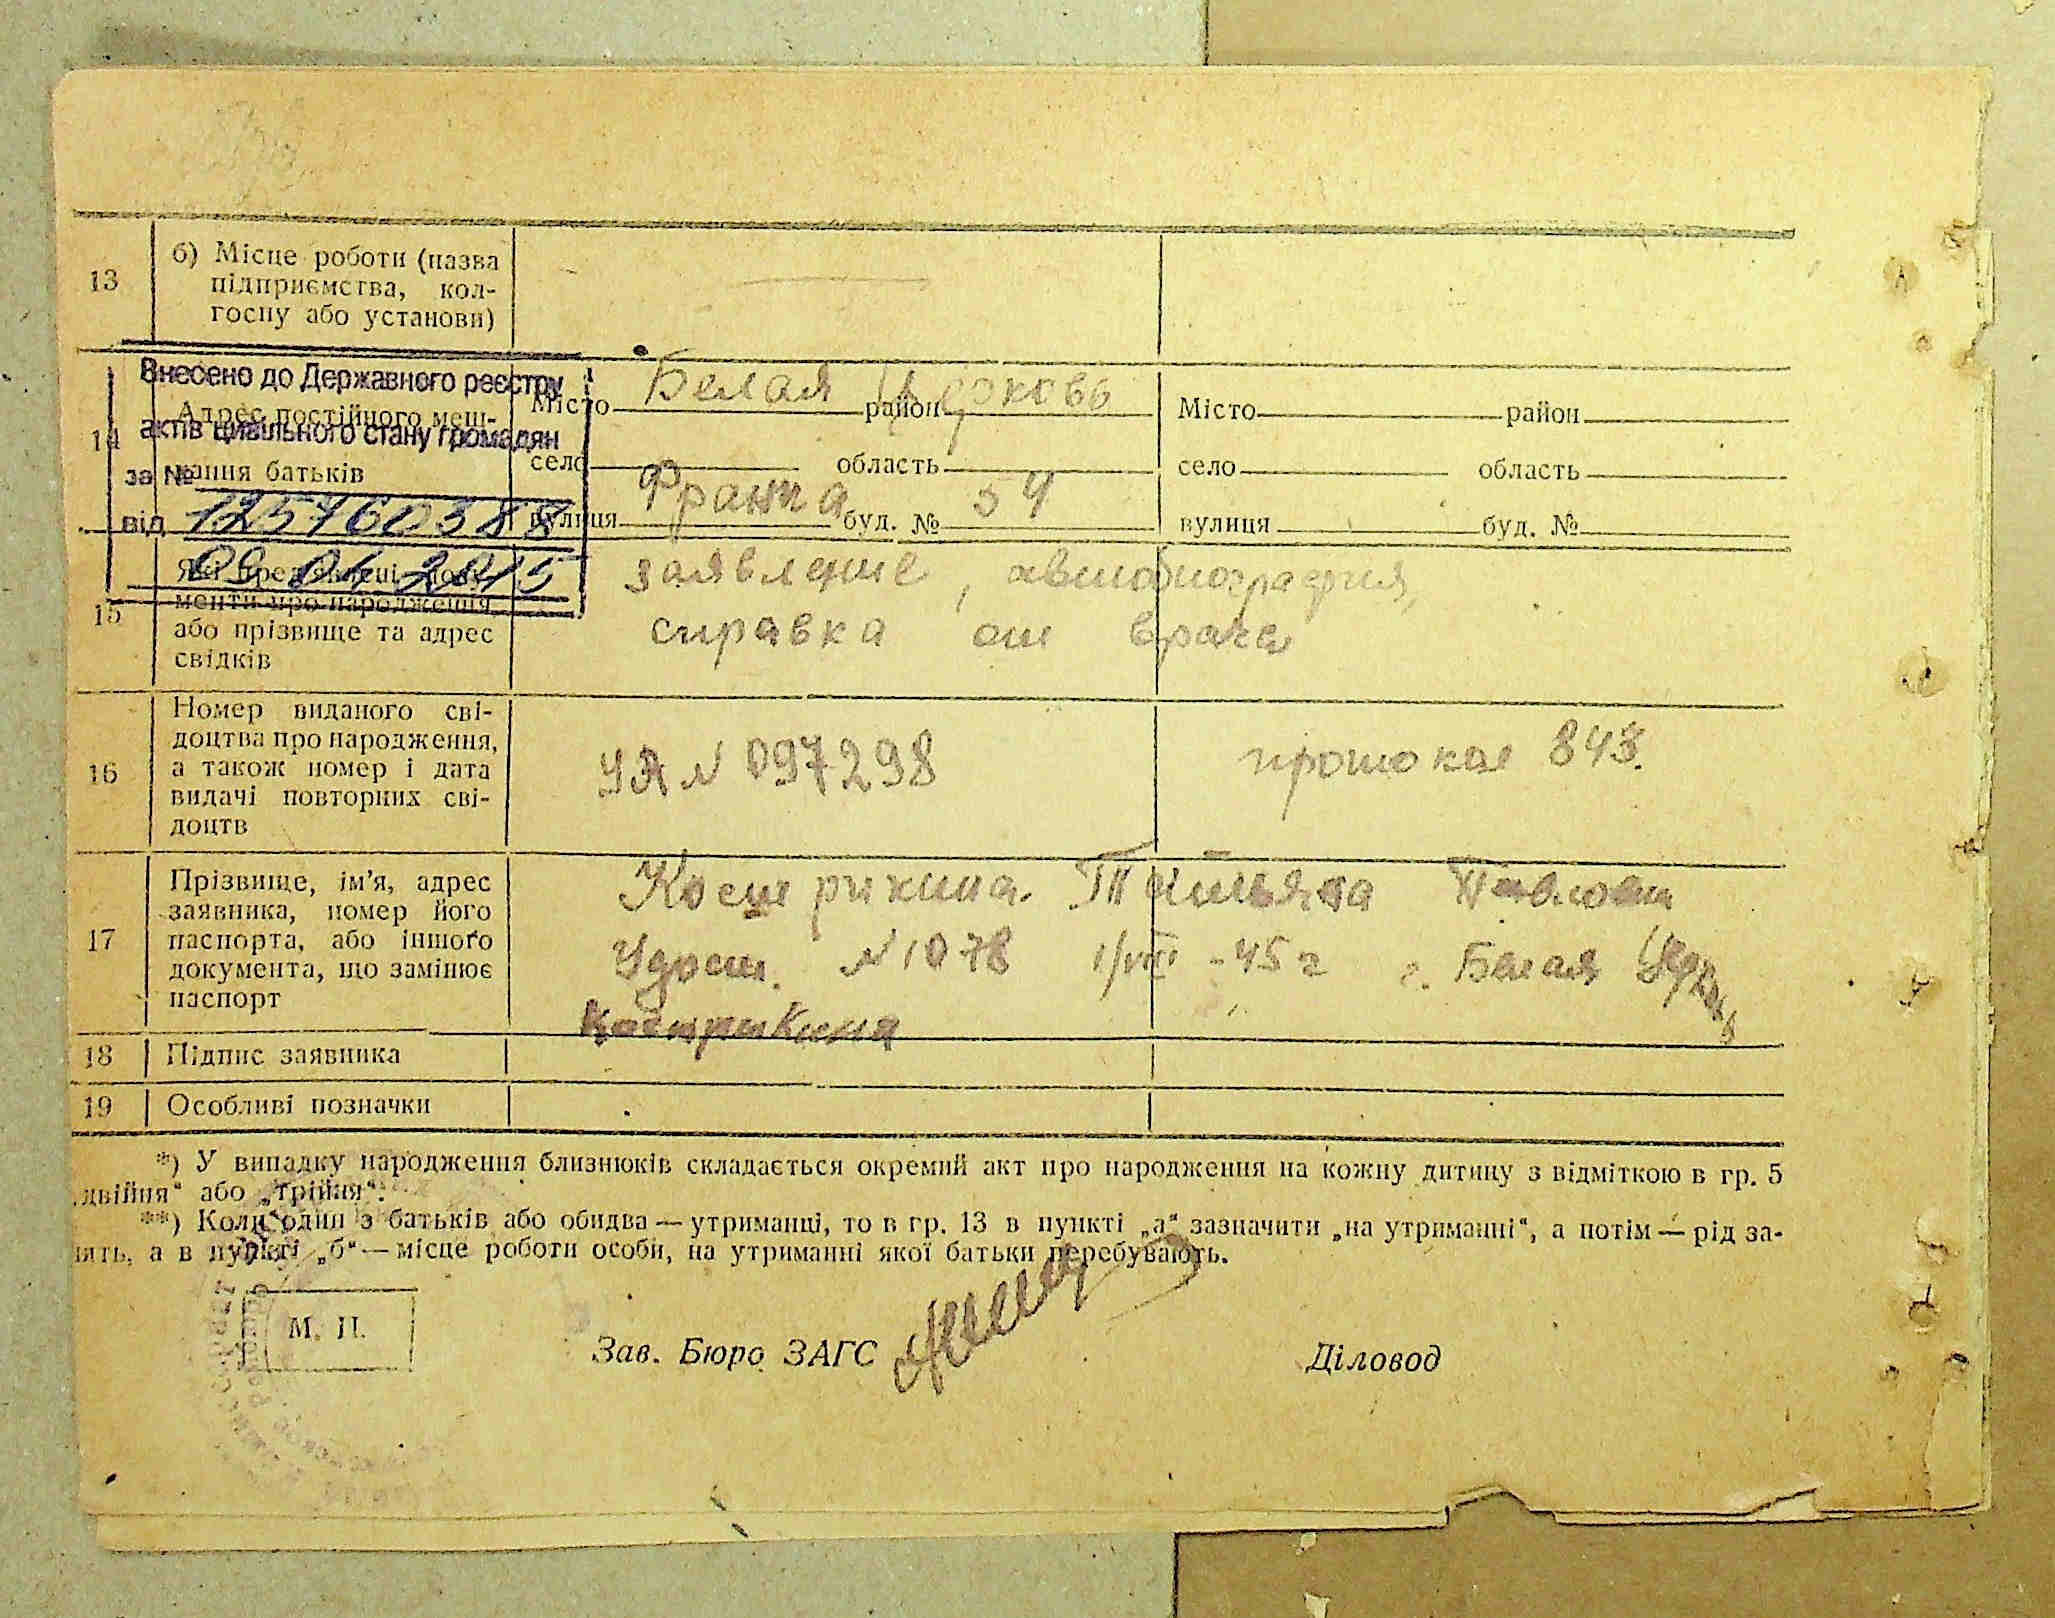 13
б) Місце роботи (назва
підприємства, кол-
госпу або установи)
Внесено до Державного реєстру
актів цивільного стану громадян
за №
від 12576038
09 04 2015
14
Адрес постійного меш-
кання батьків
Місто Белая Церковь район
село область
вулиця Франка буд. № 54
Місто район
село область
вулиця буд. №
15
Які пред'явлені доку-
менти про народження,
або прізвище та адрес
свідків
заявление, автобиография,
справка от врача
16
Номер виданого сві-
доцтва про народження,
а також номер і дата
видачі повторних сві-
доцтв
УЯ N 097298
протокол 843.
17
Прізвище, ім'я, адрес
заявника, номер його
паспорта, або іншоґо
документа, що замінює
паспорт
Кострикина Татьяна
Удост. N 1078 1/VIII -45 г г. Белая Церковь
Кострикина
18 Підпис заявника
19 Особливі позначки
*) У випадку народження близнюків складається окремий акт про народження на кожну дитину з відміткою в гр. 5
„двійня“ або „трійня“.
**) Коли один з батьків або обидва — утриманці, то в гр. 13 в пункті „а“ зазначити „на утриманні“, а потім — рід за-
нять, а в пункті „б“ — місце роботи особи, на утриманні якої батьки перебувають.
М. П.
Зав. Бюро ЗАГС
Діловод